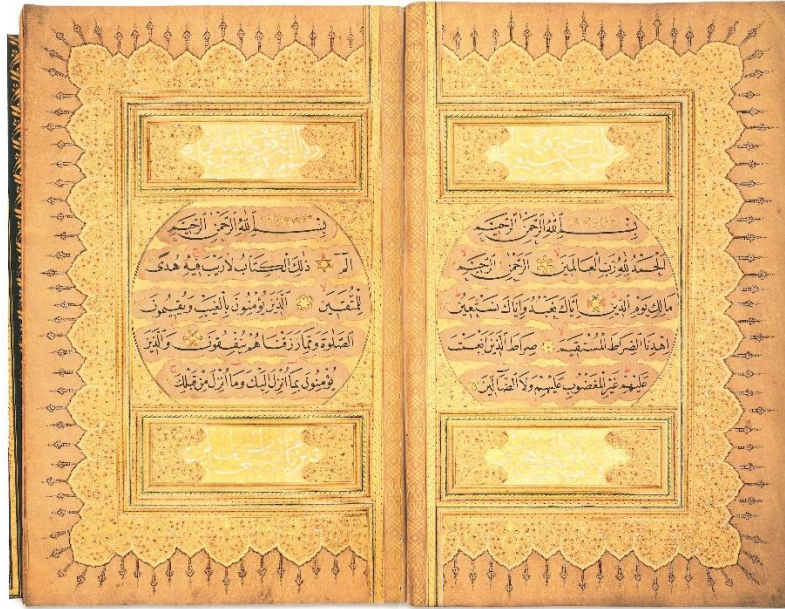 بِسْمِ اللّٰهِ الرَّحْمٰنِ الرَّحِيمِ
اَلْحَمْدُ لِلّٰهِ رَبِّ الْعَالَمِينَ الرَّحْمٰنِ الرَّحِيمِ
مَالِكِ يَوْمِ الدِّينِ اِيَّاكَ نَعْبُدُ وَاِيَّاكَ نَسْتَعِينُ
اِهْدِنَا الصِّرَاطَ الْمُسْتَقِيمَ صِرَاطَ الَّذِينَ اَنْعَمْتَ
عَلَيْهِمْ غَيْرِ الْمَغْضُوبِ عَلَيْهِمْ وَلَا الضَّالِّينَ
بِسْمِ اللّٰهِ الرَّحْمٰنِ الرَّحِيمِ
الٓمٓ ذٰلِكَ الْكِتَابُ لَا رَيْبَ فِيهِ هُدًى
لِلْمُتَّقِينَ اَلَّذِينَ يُؤْمِنُونَ بِالْغَيْبِ وَيُقِيمُونَ
الصَّلٰوةَ وَمِمَّا رَزَقْنَاهُمْ يُنْفِقُونَ وَالَّذِينَ
يُؤْمِنُونَ بِمَا اُنْزِلَ اِلَيْكَ وَمَا اُنْزِلَ مِنْ قَبْلِكَ